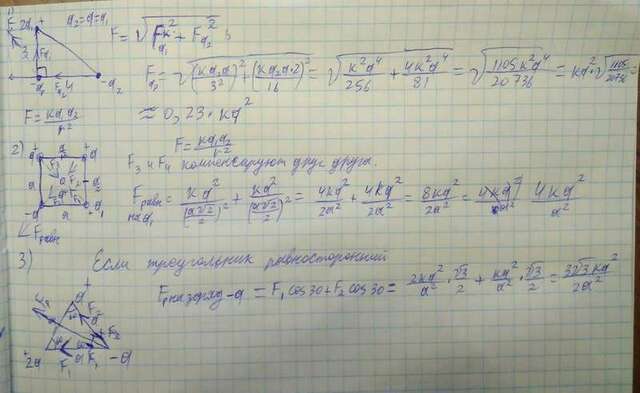 1) 2q + q₂=q=q₁ F = √(F²q₁ + F²q₂)
3 Fq₁
-q₁ Fq₂ 4 -q₂
Fр = √((kq₁q/3²)² + (kq₂q·2/16)²) = √(k²q⁴/256 + 4k²q⁴/81) = √(1105k²q⁴/20736) = kq²·√(1105/20736) =
F = kq₁q₂/r² ≈ 0,23·kq²
F = kq₁q₂/r²
2) + q a + q
F₃ и F₄ компенсируют друг друга.
a 0 a
-q a + q₁
Fравн на q₁ = kq²/(a√2/2)² + kq²/(a√2/2)² = 4kq²/2a² + 4kq²/2a² = 8kq²/2a² = 4kq²/a²
Fравн
3) Если треугольник равносторонний
F, на заряд -q = F₁ cos30 + F₂ cos30 = 2kq²/a² · √3/2 + kq²/a² · √3/2 = 3√3kq²/2a²
+ q
a F₂
+2q a F₁ -q
F₁